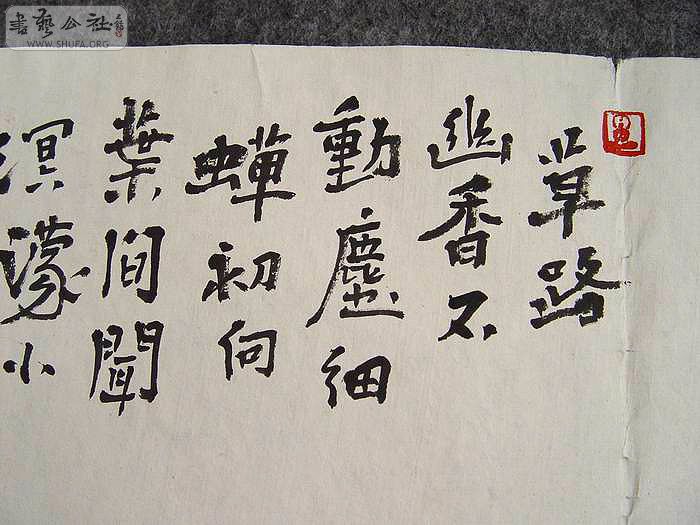 草路
幽香不
動塵細
蟬初向
葉間聞
溟濛小
書藝公社
WWW.SHUFA.ORG